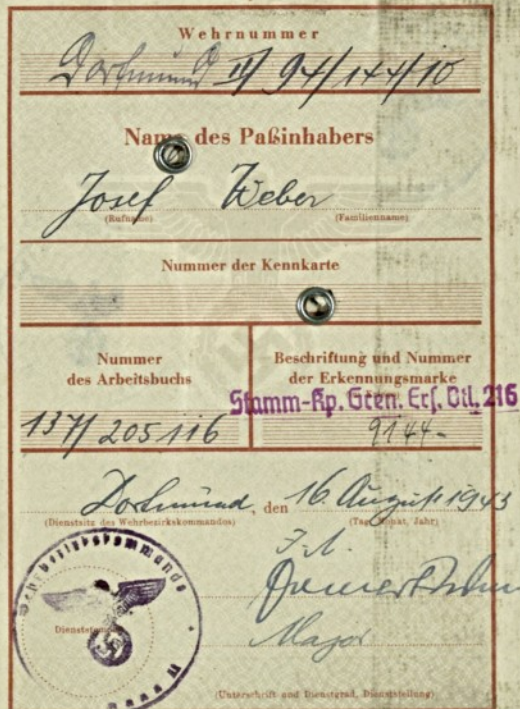 Wehrnummer
Dortmund IV 94/144/10
Name des Paßinhabers
Josef Weber
(Rufname) (Familienname)
Nummer der Kennkarte
Nummer des Arbeitsbuchs
137/205116
Beschriftung und Nummer
der Erkennungsmarke
Stamm-Kp. Gren. Ers. Btl. 216
9144-
Dortmund, den 16. August 1943
(Dienstsitz des Wehrbezirkskommandos) (Tag, Monat, Jahr)
Major
Dienststempel
(Unterschrift und Dienstgrad, Dienststellung)